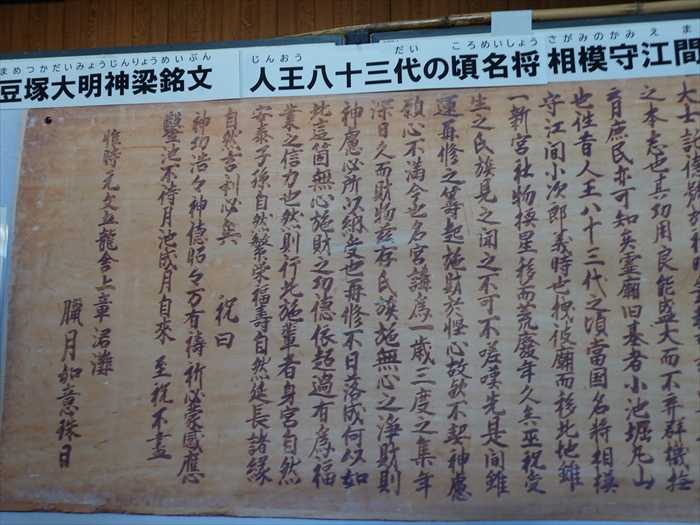 まめつかだいみょうじんりょうめいぶん
豆塚大明神梁銘文
じんおう だい ころめいしょう さがみのかみえま
人王八十三代の頃名将 相模守江間
大士記
之本志也其功用良能盛大而不弃群機故
言庶民亦可知矣霊廟旧基者小池堀丸山
也往昔人王八十三代之頃當国名将相模
守江間小次郎義時也
一新宮社物換星移而荒廢年久矣巫祝受
生之氏族見之聞之不可不嗟嘆先是間雖
運再修之籌起施財於慳心故欤不契神慮
顆心不満今也名宮講為一歳三度之集年
深日久而財物玆存氏族施無心之浄財則
神慮必所以納受也再修不日落成何以如
此這箇無心施財之功徳依起過有為福
業之信力也然則行此施輩者身宮自然
安泰子孫自然繁栄福壽自然延長諸縁
自然吉利必矣 祝曰
神功浩々神徳昭々万有祷祈必蒙感應
鑿池不待月池成月自来 至祝不盡
惟時元文五龍舎上章涒灘
臘月如意珠日